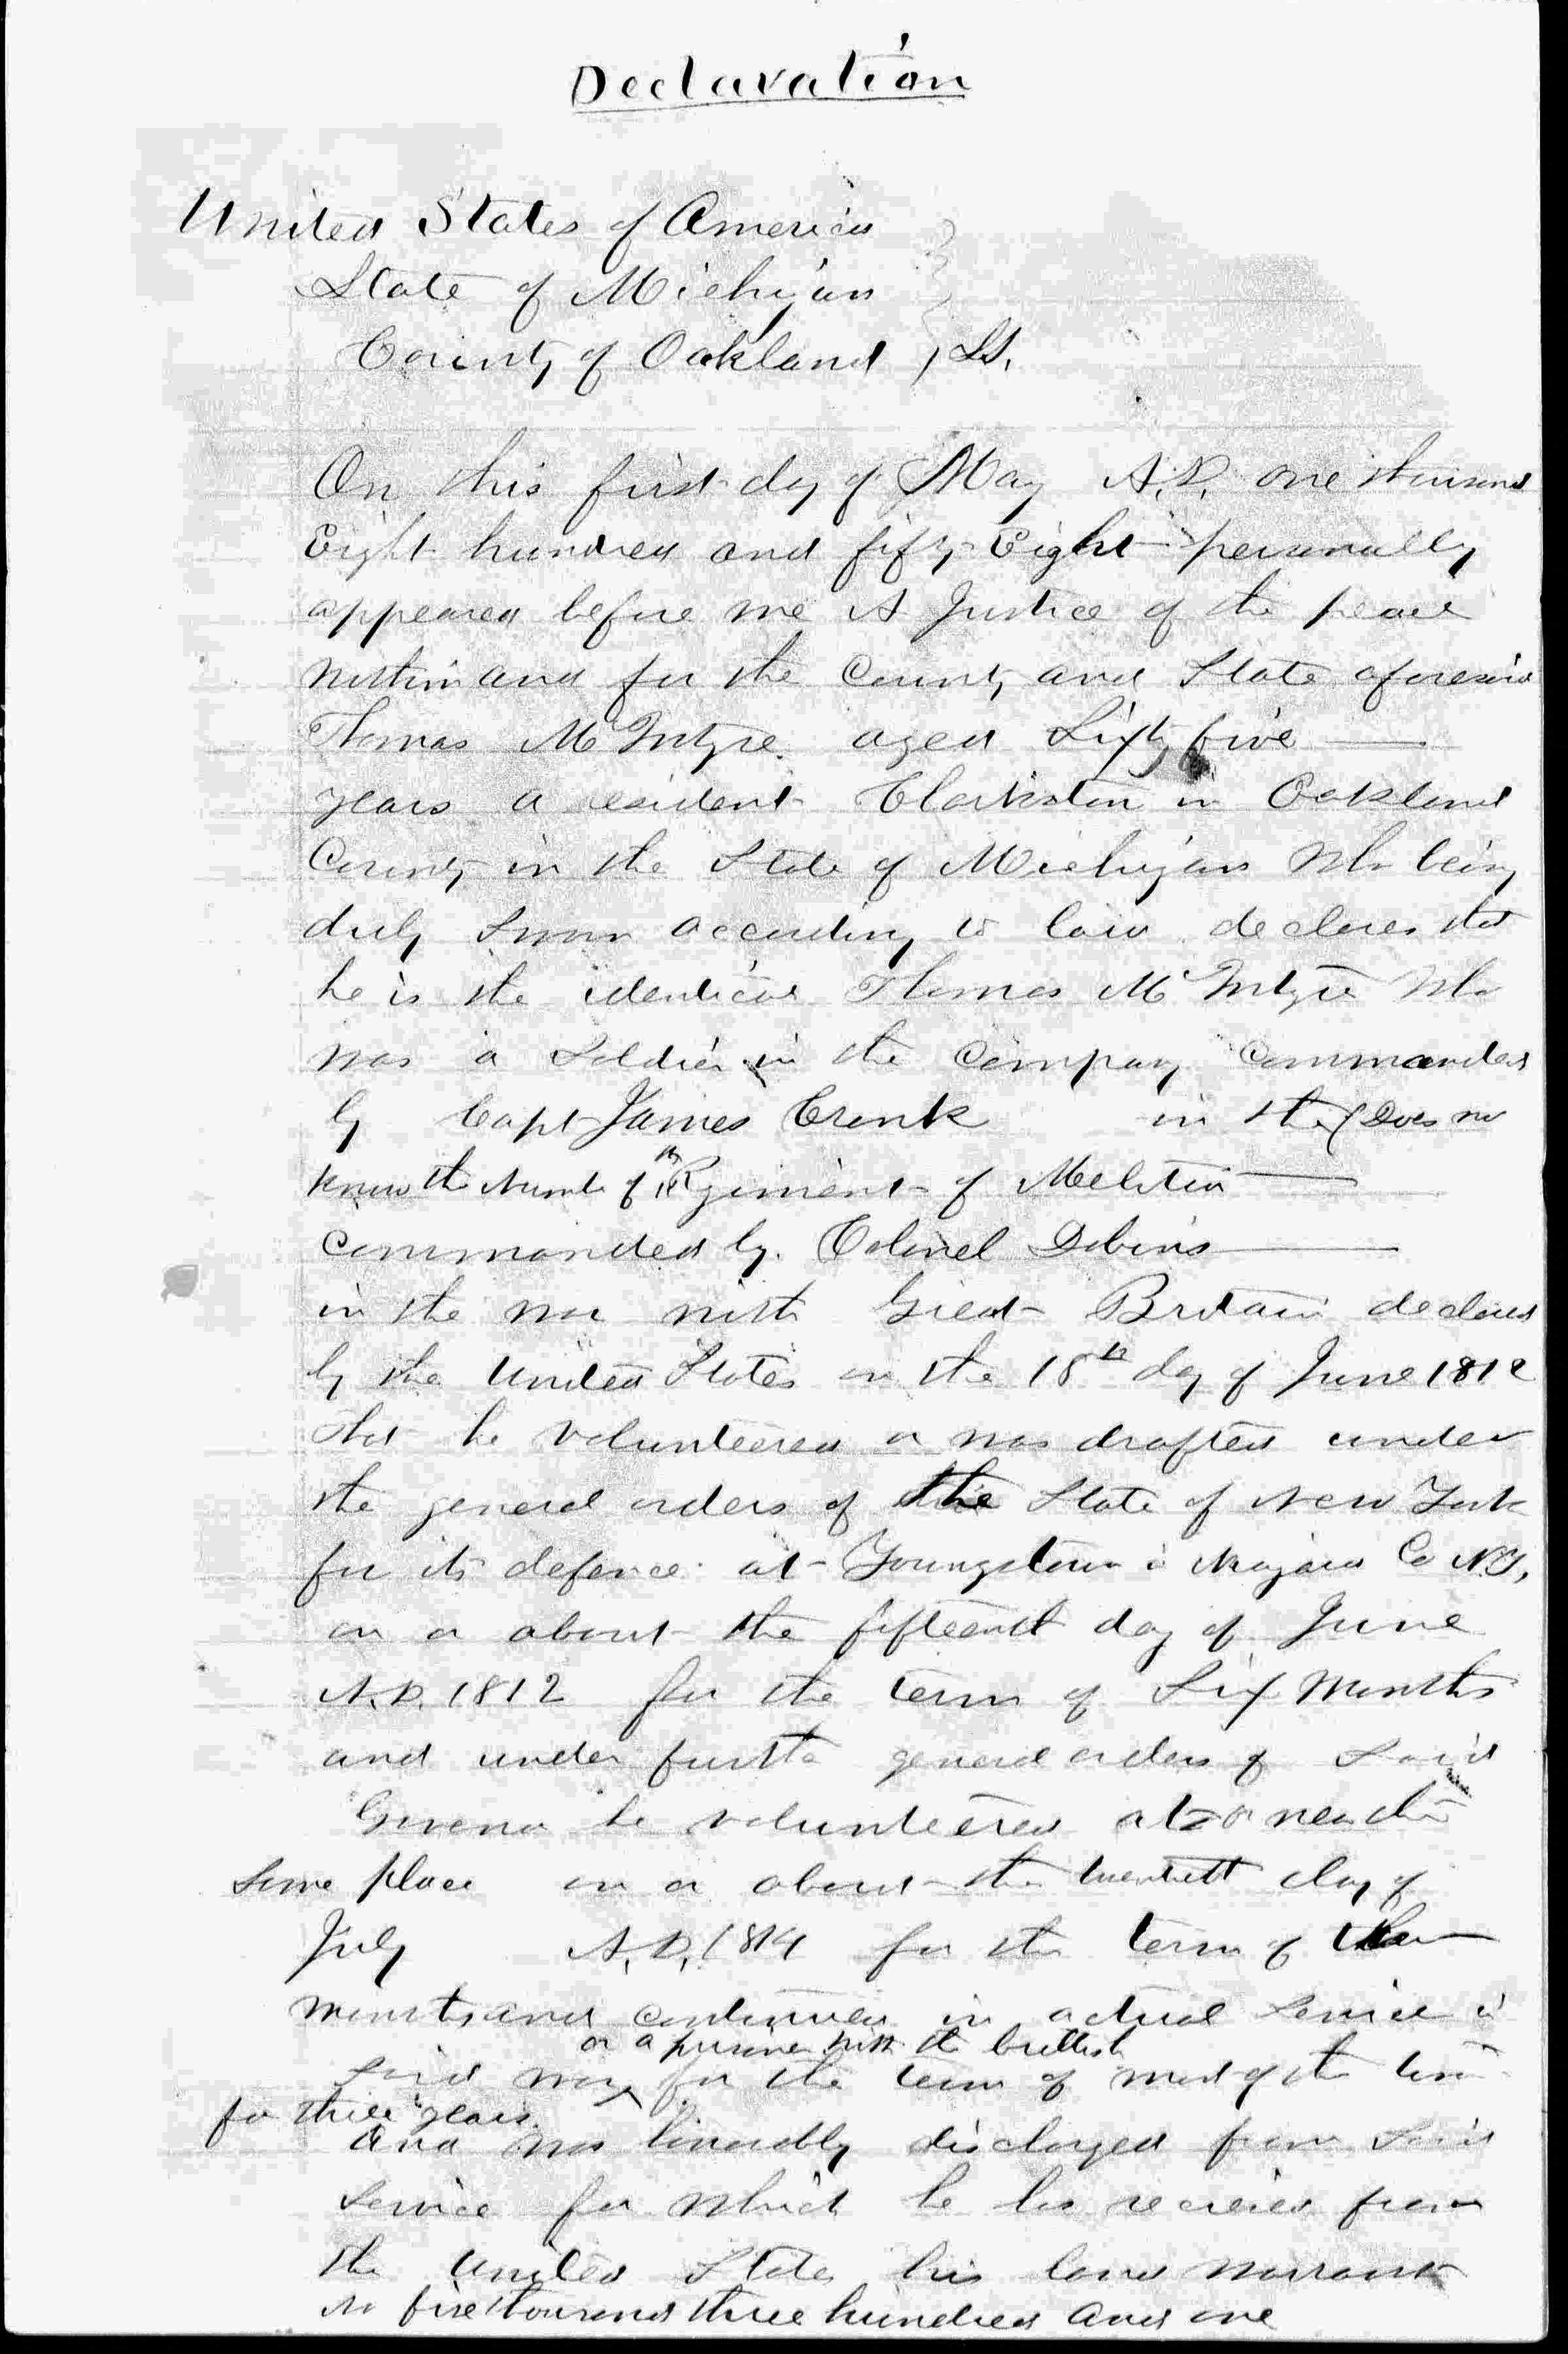 Declaration
United States of America
State of Michigan
County of Oakland, SS.
On this first day of May A.D. one thousand
Eight hundred and fifty Eight personally
appeared before me A Justice of the peace
within and for the County and State aforesaid
Thomas McIntyre aged Sixty five
years a resident Clarkston in Oakland
County in the State of Michigan Who being
duly Sworn according to law declares that
he is the identical Thomas McIntyre Who
was a Soldier in the Company Commanded
by Capt James Cronk in the (Does no
know the Numb of the Regiment of Melitia
Commanded by Colonel Dobins
in the war with Great Britain declared
by the United States on the 18th day of June 1812
that he volunteered or was drafted under
the general orders of the State of New York
for its defence at Youngstown in Niagara Co N.Y,
on or about the fifteenth day of June
A.D. 1812 for the term of Six Months
and under further general orders of Said
Govenor he volunteered at or near the
Same place on or about the twentieth day of
July A.D, 1814 for the term of
months and continued in actual Service in
or a prisoner with the brittish
Said war for the term of most of the time
for three years.
and was honorably discharged from Said
Service for which he has recieved from
the United States his land warrant
No five thousand three hundred and one